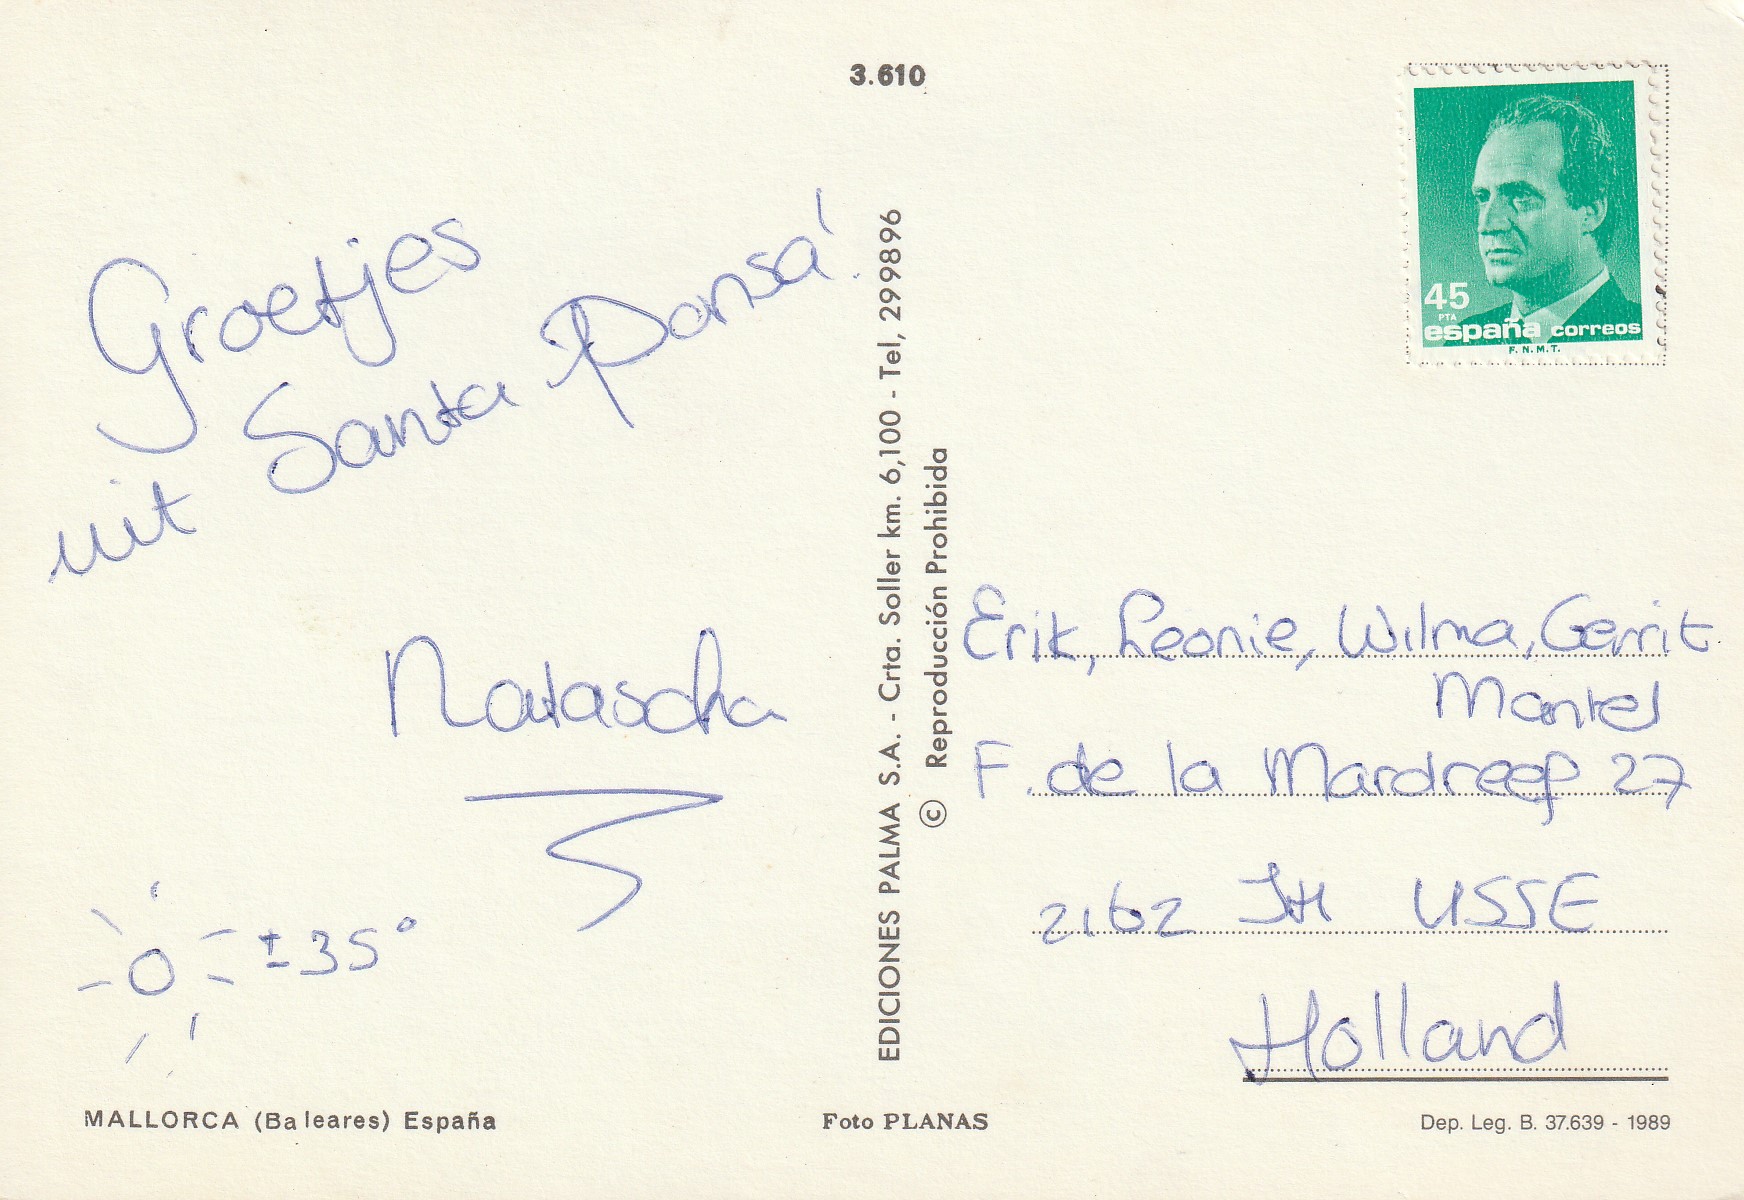 3.610
Groetjes
uit Santa Ponsa!
Natascha
± 35°
MALLORCA (Baleares) España
EDICIONES PALMA S.A. - Crta. Soller km. 6,100 - Tel, 299896
© Reproducción Prohibida
Foto PLANAS
45
PTA
españa correos
F.N.M.T.
Erik, Leonie, Wilma, Gerrit
Mantel
F. de la Mardreef 27
2162 JH LISSE
Holland
Dep. Leg. B. 37.639 - 1989